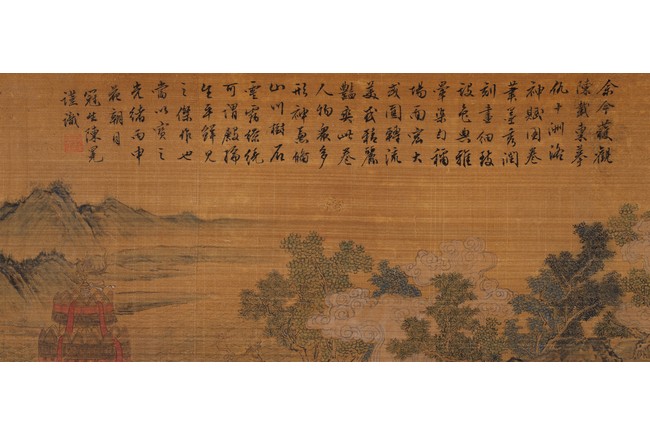 余今薇觀
陳戴東摹
仇十洲洛
神賦圖卷
筆墨秀潤
刻畫細致
設色典雅
畢集勻稱
場面宏大
或團轉流
美或精麗
豔爽此卷
人物衆多
形神兼備
山川樹石
雲霞繚繞
可謂殿掃
生平鮮見
之傑作也
當以寶之
光緒丙申
花朝日
冠生陳冕
謹識